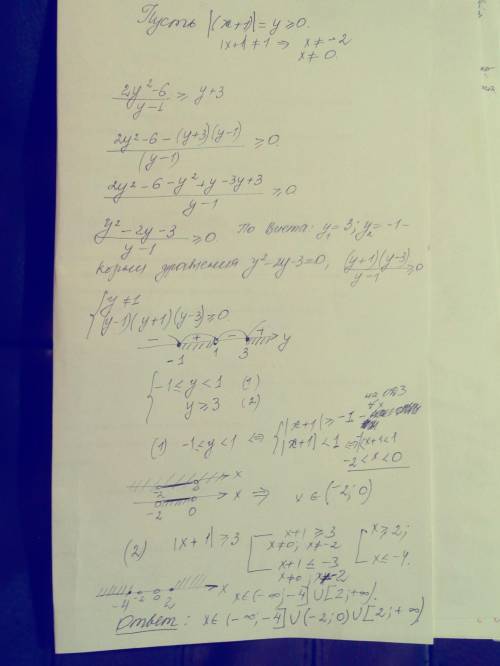 Пусть |(x+1)| = y ≥ 0.
|x+1| ≠ 1 ⇒ x ≠ -2
x ≠ 0.
(2y²-6)/(y-1) ≥ y+3
(2y²-6-(y+3)(y-1))/(y-1) ≥ 0
(2y²-6-y²+y-3y+3)/(y-1) ≥ 0
(y²-2y-3)/(y-1) ≥ 0. По Виета: y₁ = 3; y₂ = -1 -
корни уравнения y²-2y-3=0, (y+1)(y-3)/(y-1) ≥ 0
{ y ≠ 1
(y-1)(y+1)(y-3) ≥ 0
- + - + y
-1 1 3
{ -1 ≤ y < 1 (1)
y ≥ 3 (2)
(1) -1 ≤ y < 1 ⇔ { |x+1| ≥ -1 -
|x+1| < 1 ⇔ -1<x+1<1
-2 < x < 0
-2 0 x
-2 0 x ⇒ x ∈ (-2; 0)
(2) |x+1| ≥ 3 [ x+1 ≥ 3 [ x ≥ 2;
x≠0; x≠-2
x+1 ≤ -3 x ≤ -4.
x≠0; x≠-2
-4 -2 0 2 x x ∈ (-∞; -4] ∪ [2; +∞).
Ответ: x ∈ (-∞; -4] ∪ (-2; 0) ∪ [2; +∞)